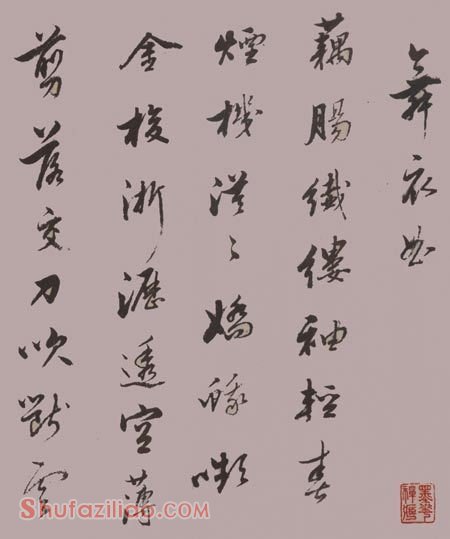 舞衣曲
藕腸纖縷袖輕春
煙機漠〻嬌蛾嚬
金梭淅瀝透空薄
剪落交刀吹斷雲
Shufaziliao.com